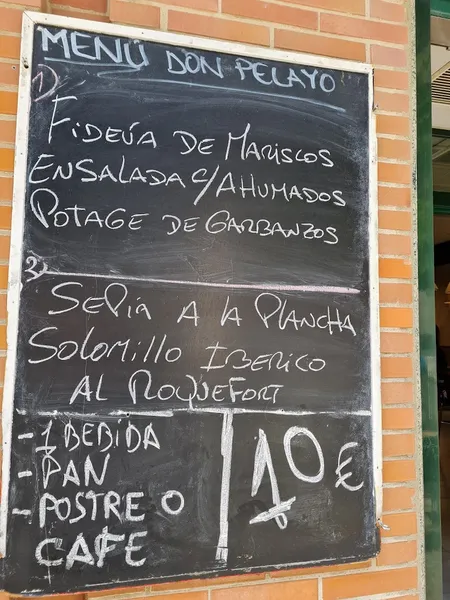 MENÚ DON PELAYO
1)
FIDEUA DE MARISCOS
ENSALADA C/AHUMADOS
POTAGE DE GARBANZOS
2)
SEPIA A LA PLANCHA
SOLOMILLO IBERICO
AL ROQUEFORT
- 1 BEBIDA
- PAN
- POSTRE O
CAFE
10€